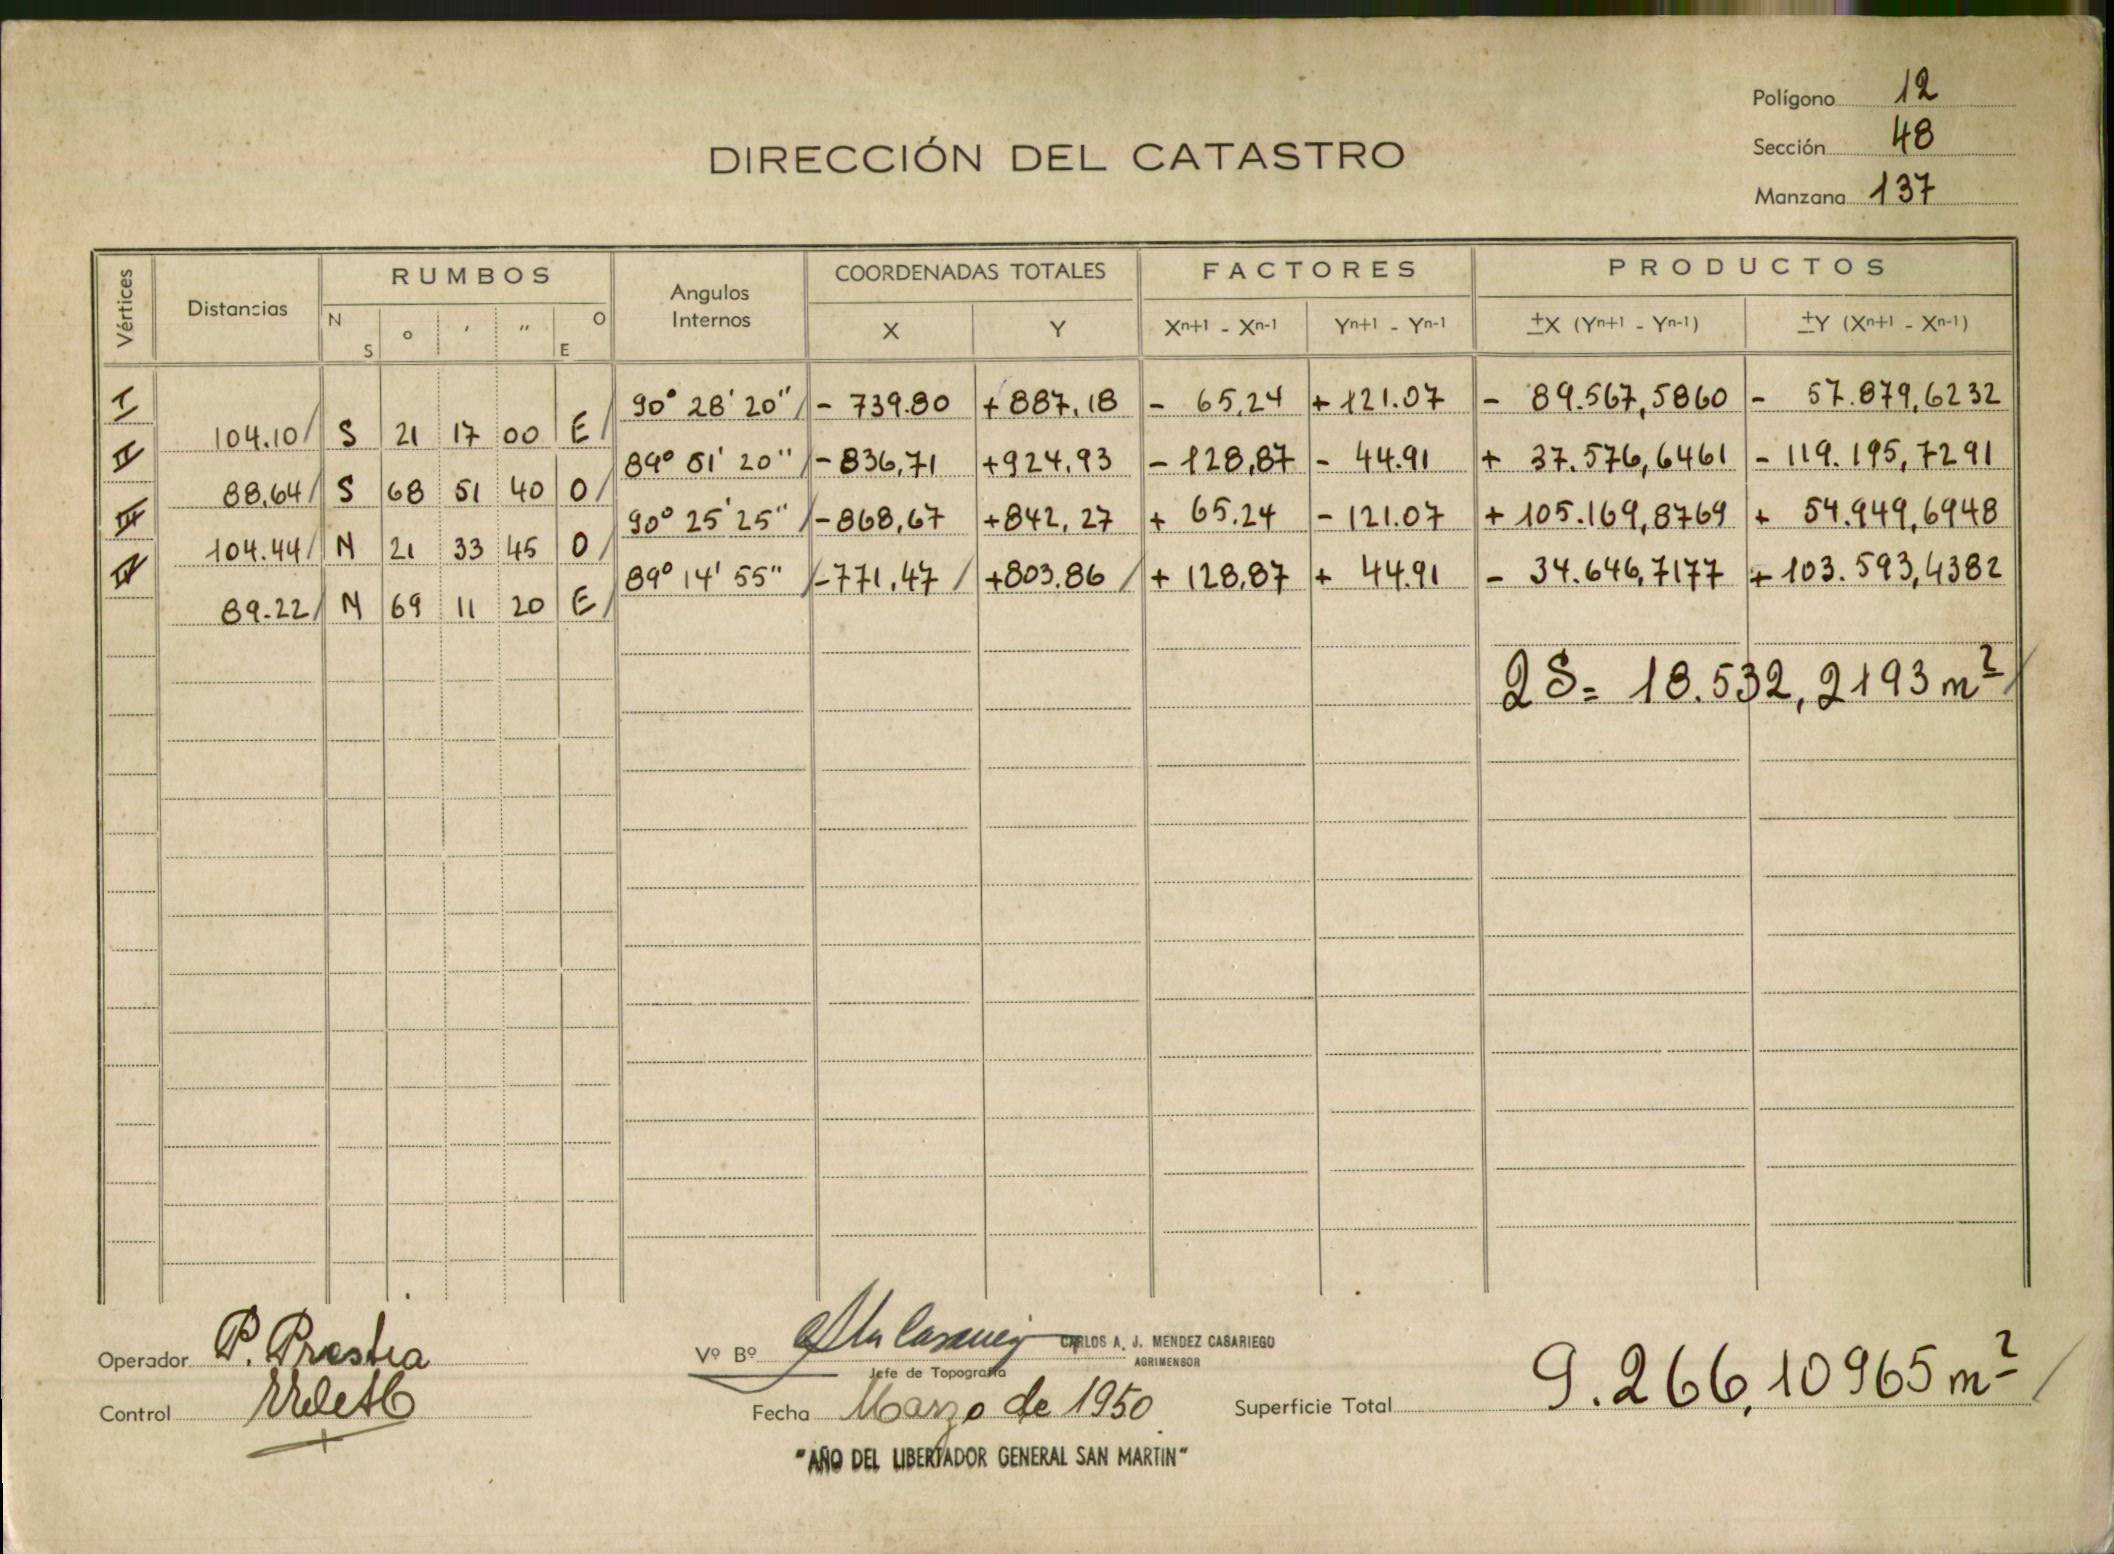 Polígono 12
Sección 48
Manzana 137
DIRECCIÓN DEL CATASTRO
Vértices Distancias RUMBOS Angulos Internos COORDENADAS TOTALES FACTORES PRODUCTOS
N S ° ' " O E X Y Xn+1 - Xn-1 Yn+1 - Yn-1 ±X (Yn+1 - Yn-1) ±Y (Xn+1 - Xn-1)
I 90° 28' 20" - 739.80 + 887,18 - 65,24 + 121.07 - 89.567,5860 - 57.879,6232
104.10 S 21 17 00 E
II 89° 51' 20" - 836,71 + 924,93 - 128,87 - 44.91 + 37.576,6461 - 119.195,7291
88,64 S 68 51 40 O
III 90° 25' 25" - 868,67 + 842,27 + 65.24 - 121.07 + 105.169,8769 + 54.949,6948
104.44 N 21 33 45 O
IV 89° 14' 55" - 771,47 + 803.86 + 128,87 + 44.91 - 34.646,7177 + 103.593,4382
89.22 N 69 11 20 E
2S= 18.532,2193 m²
Operador P. Prestia
Control
Vº Bº CARLOS A. J. MENDEZ CASARIEGO
AGRIMENSOR
Jefe de Topografía
Fecha Marzo de 1950
Superficie Total 9.266,10965 m²
"AÑO DEL LIBERTADOR GENERAL SAN MARTIN"